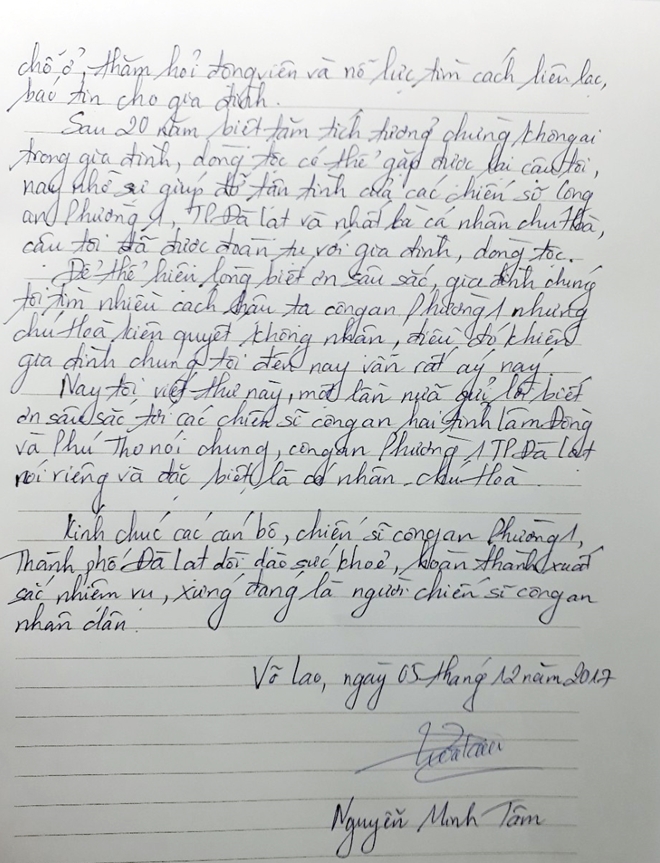 chỗ ở, thăm hỏi động viên và nỗ lực tìm cách liên lạc,
báo tin cho gia đình.
Sau 20 năm biệt tăm tích tưởng chừng không ai
trong gia đình, dòng tộc có thể gặp được lại cậu tôi,
nay nhờ sự giúp đỡ tận tình của các chiến sỹ Công
an Phường 1, TP Đà Lạt và nhất là cá nhân chú Hoà,
cậu tôi đã được đoàn tụ với gia đình, dòng tộc.
Để thể hiện lòng biết ơn sâu sắc, gia đình chúng
tôi tìm nhiều cách hậu tạ công an Phường 1 nhưng
chú Hoà kiên quyết không nhận, điều đó khiến
gia đình chúng tôi đến nay vẫn rất áy náy.
Nay tôi viết thư này, một lần nữa gửi lời biết
ơn sâu sắc tới các chiến sĩ công an hai tỉnh Lâm Đồng
và Phú Thọ nói chung, công an Phường 1 TP Đà Lạt
nói riêng và đặc biệt là cá nhân chú Hoà.
Kính chúc các cán bộ, chiến sĩ công an Phường 1,
Thành phố Đà Lạt dồi dào sức khoẻ, hoàn thành xuất
sắc nhiệm vụ, xứng đáng là người chiến sĩ công an
nhân dân.
Võ Lao, ngày 05 tháng 12 năm 2017
Nguyễn Minh Tâm